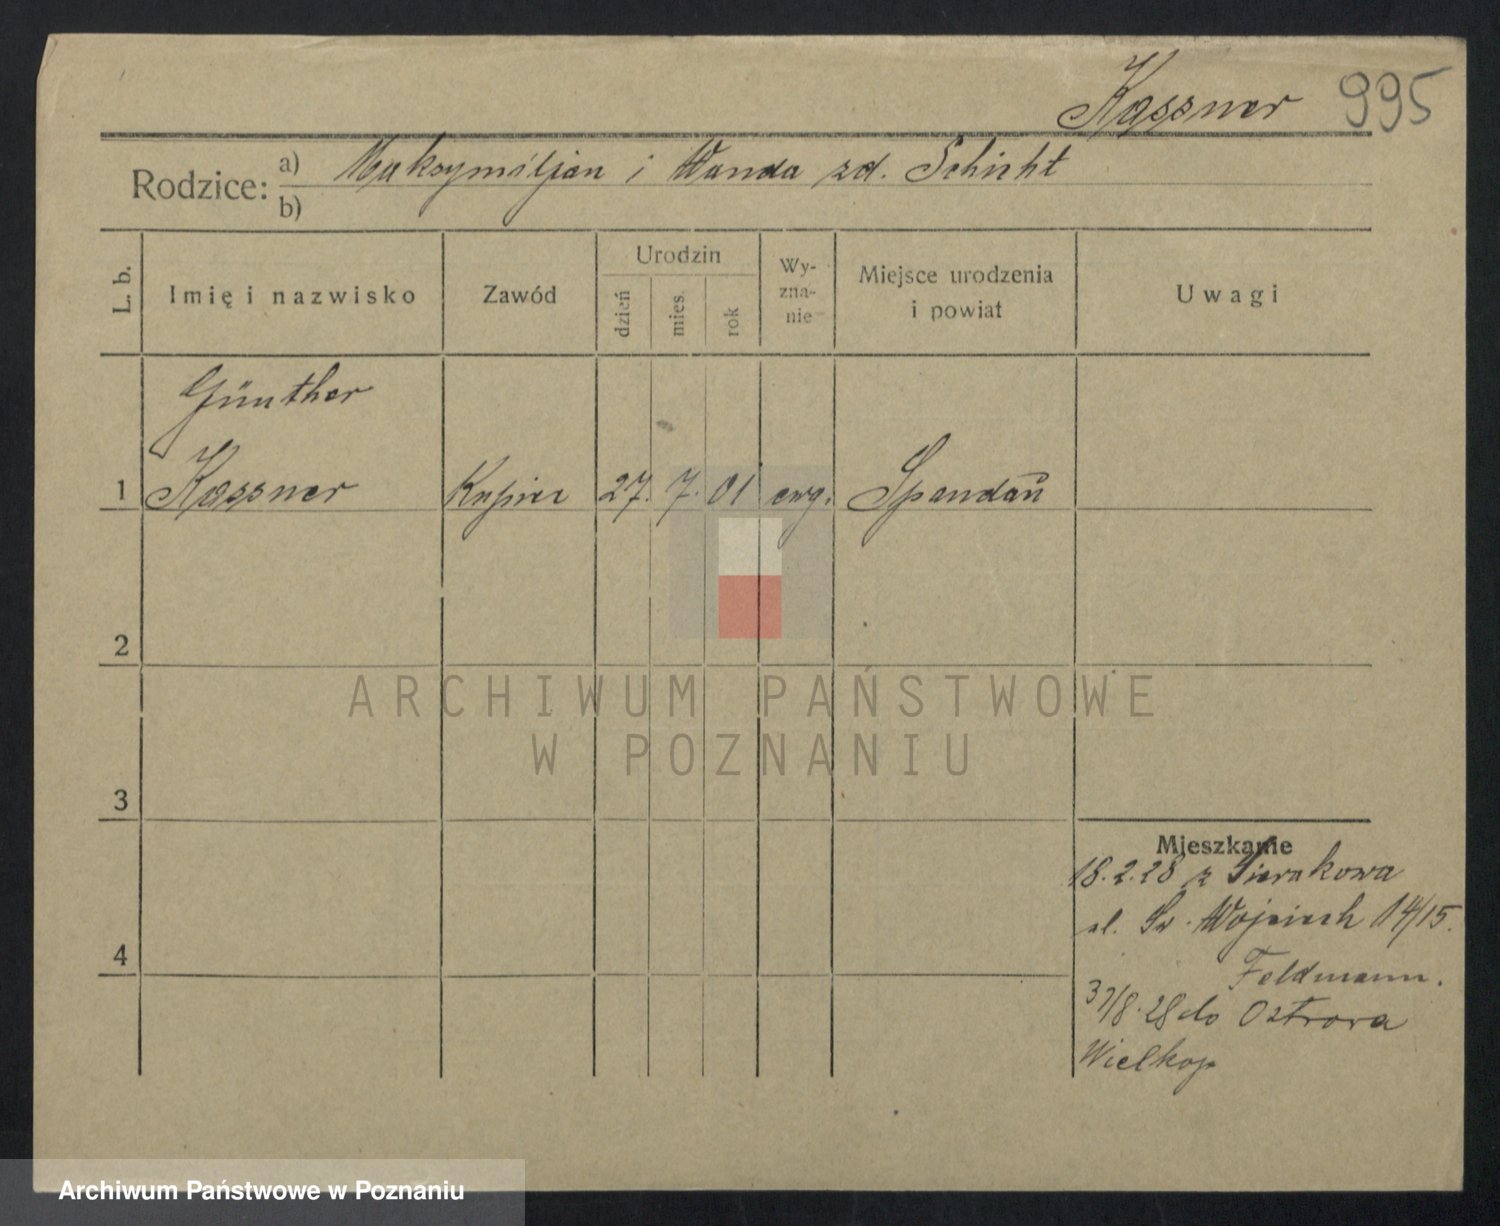 Kassner 995
Rodzice: a) Maksymiljan i Wanda zd. Schicht
b)
L. b. Imię i nazwisko Zawód Urodzin dzień mies. rok Wy-zna-nie Miejsce urodzenia i powiat Uwagi
Günther
1 Kassner Kupiec 27. 7. 01 ewg. Spandaŭ
2
ARCHIWUM PAŃSTWOWE
W POZNANIU
3
Mieszkanie
18.2.28 z Sierakowa
ul. Św. Wojciech 14/15.
4
Feldmann.
31/8.28 do Ostrowa
Wielkop
Archiwum Państwowe w Poznaniu